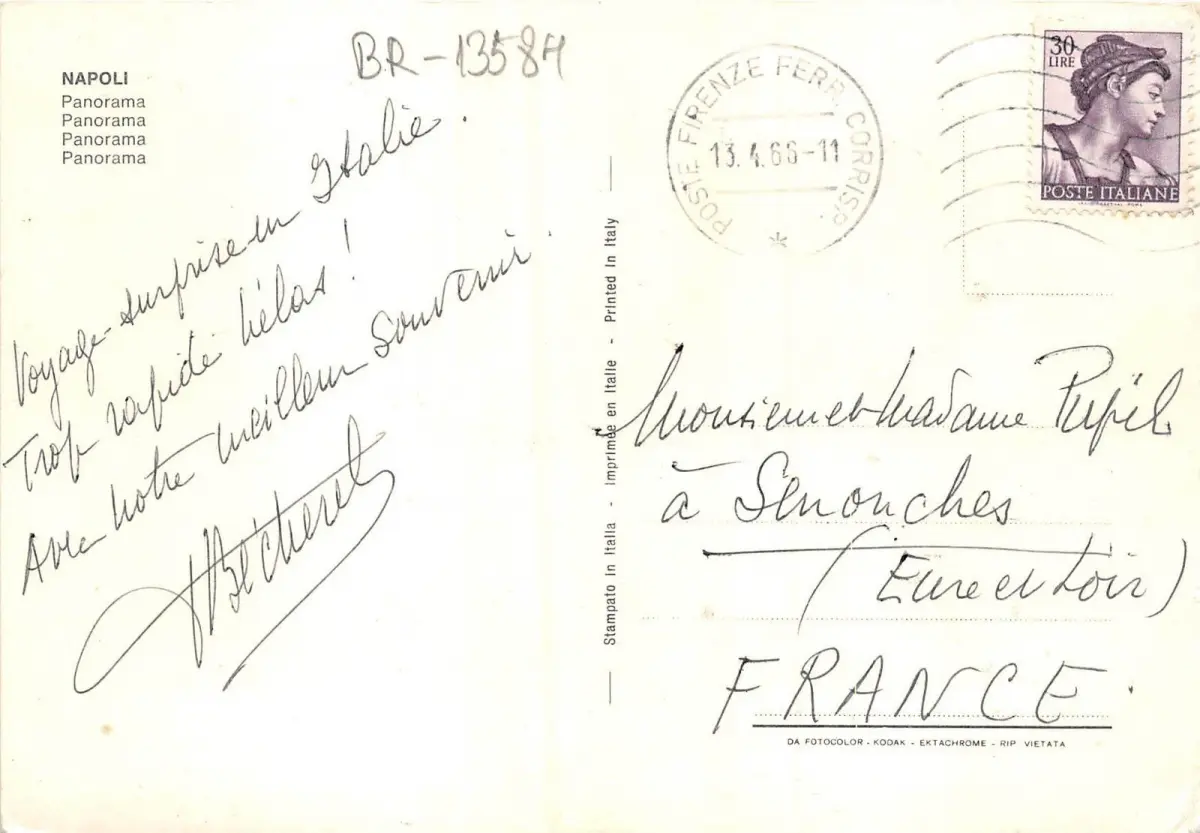 BR-13584
NAPOLI
Panorama
Panorama
Panorama
Panorama
Voyage-surprise en Italie.
Trop rapide hélas!
Avec notre meilleur souvenir.
Bécheret
Stampato in Italia - Imprimée en Italie - Printed in Italy
POSTE FIRENZE FERR. CORRISP.
13.4.66-11
30
LIRE
POSTE ITALIANE
Monsieur et Madame
à Senonches
(Eure et Loir)
FRANCE.
DA FOTOCOLOR - KODAK - EKTACHROME - RIP VIETATA